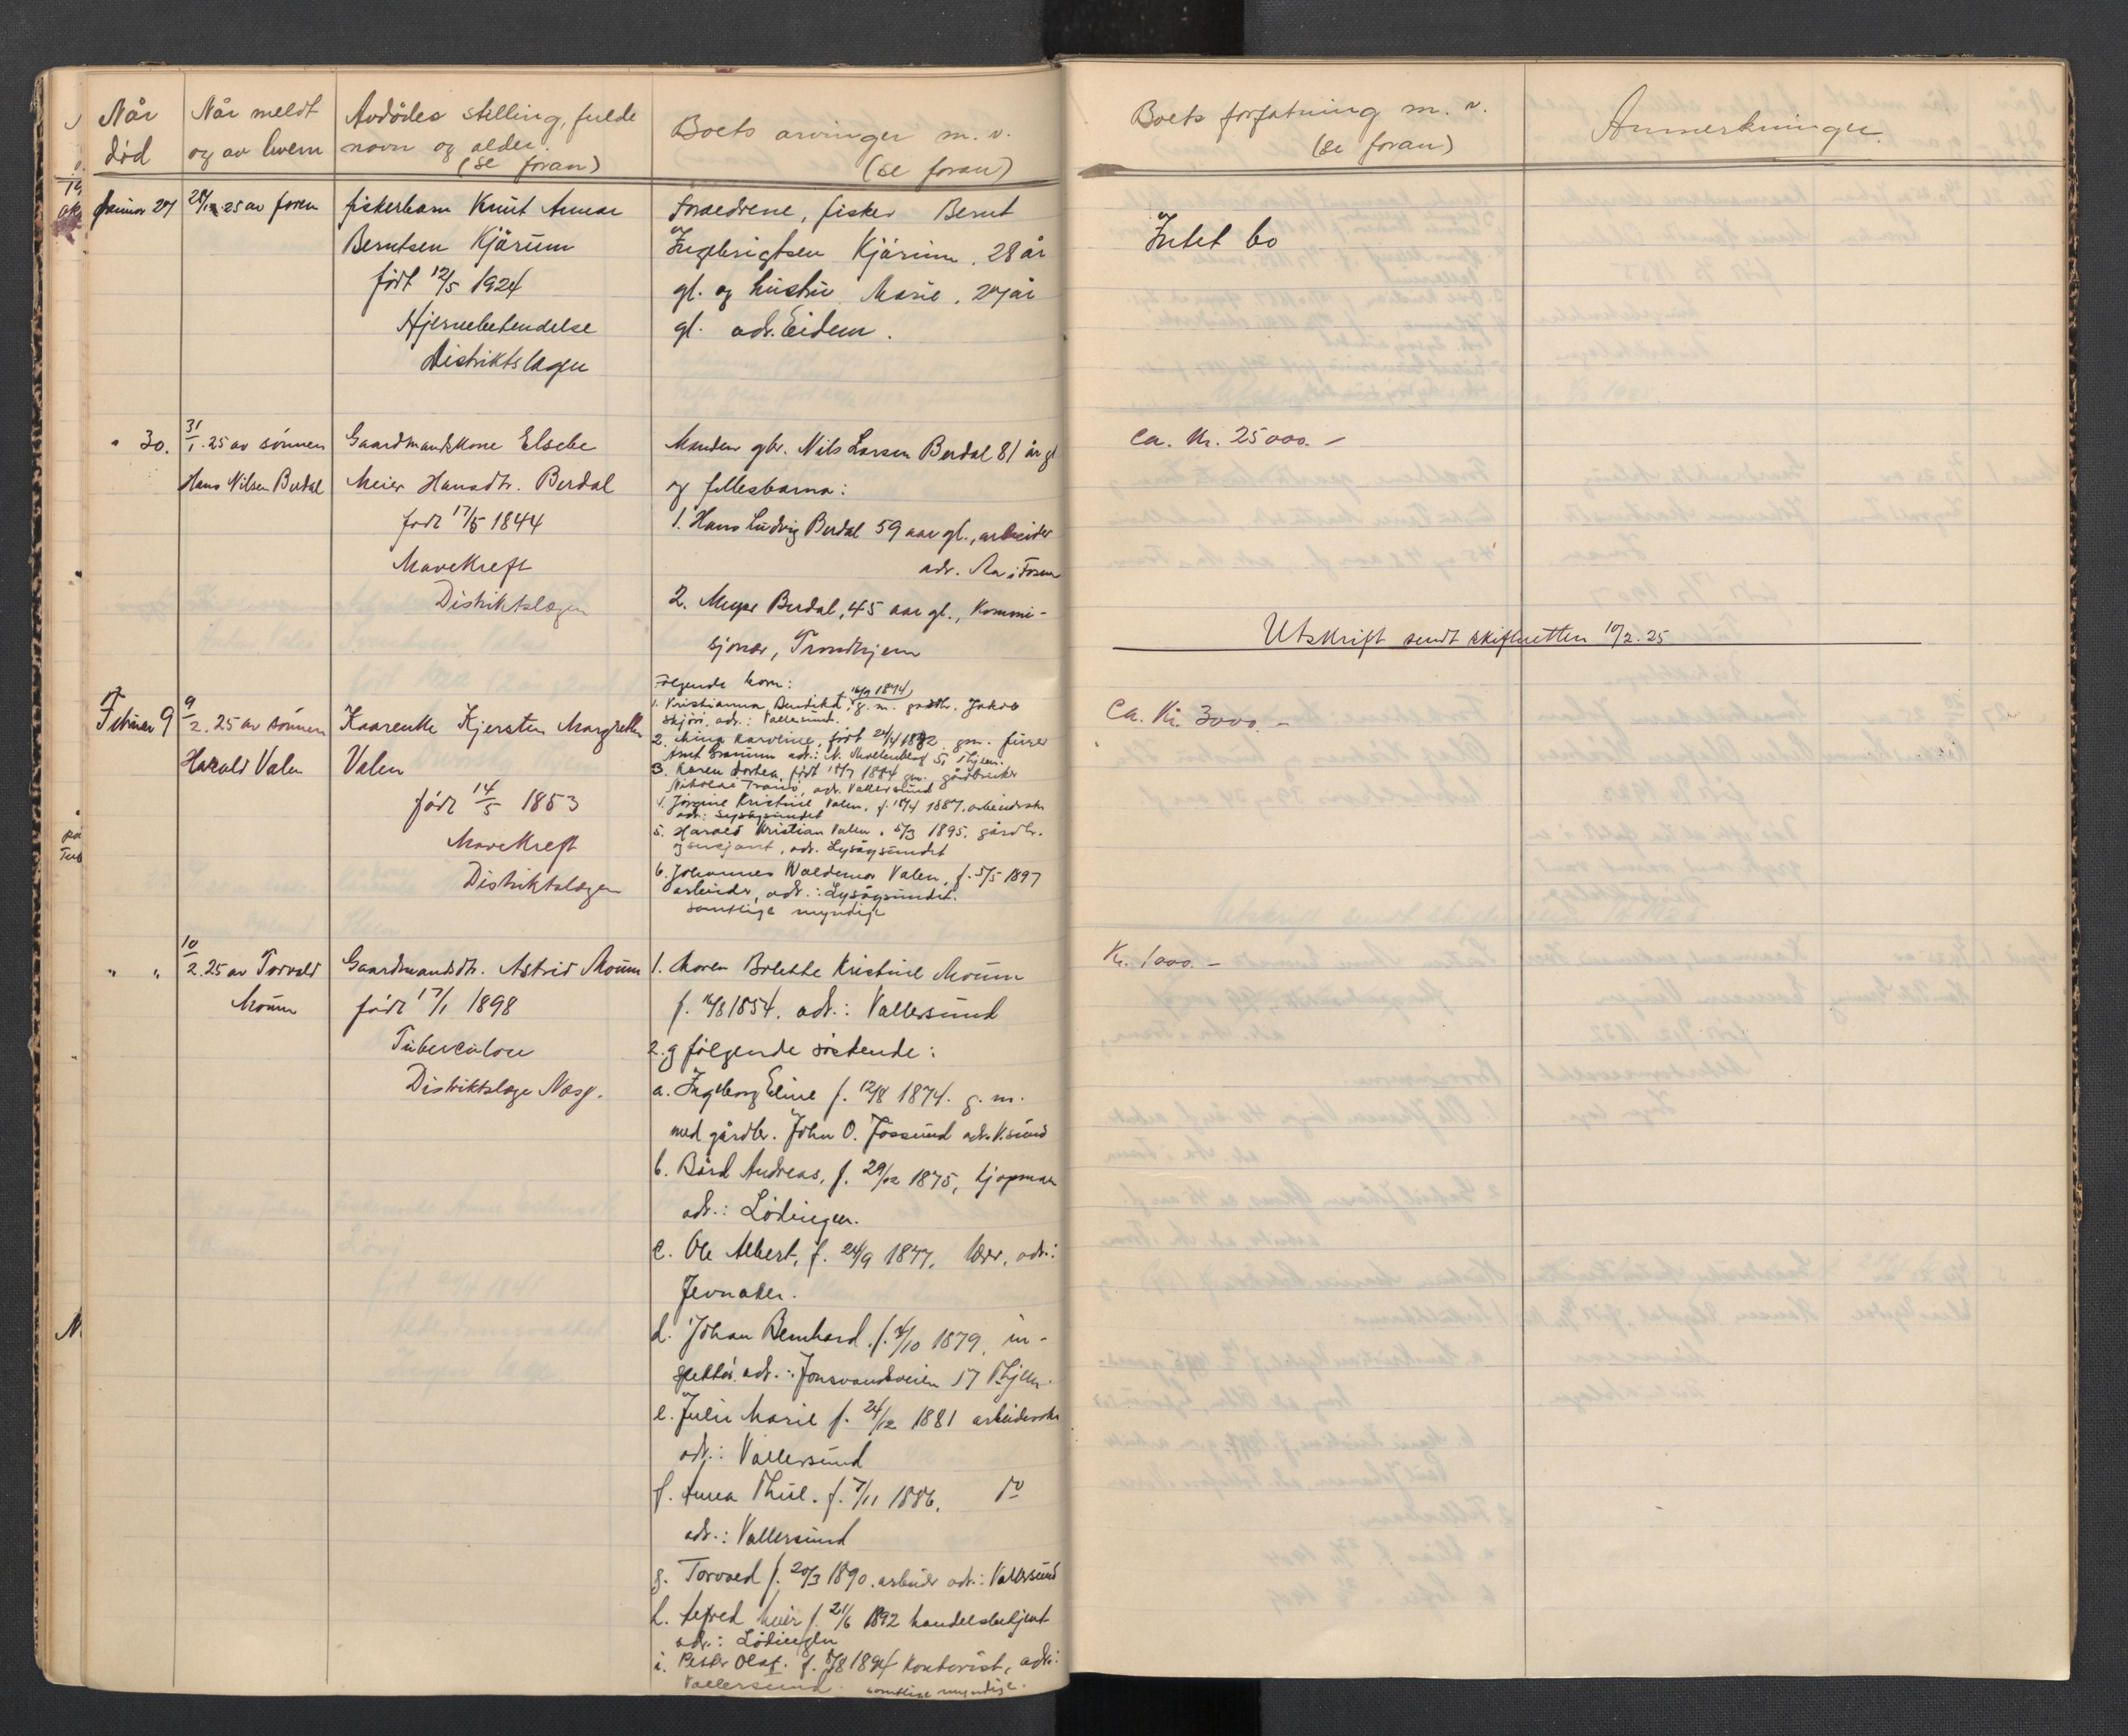 Når
død
Når meldt
og av hvem
Avdødes stilling, fulde
navn og alder.
(se foran)
Boets arvinger m. v.
(se foran)
Boets forfatning m. v.
(se foran)
Anmerkninger
Januar 27
28/1 25 av faren
fiskerbarn Knut Annar
Berntsen Kjårum
født 12/5 1924
Hjernebetendelse
Distriktslægen
Forældrene, fisker Bernt
Ingebrigtsen Kjårum, 28 år
gl. og hustru Marie, 27 år
gl. adr. Eidem.
Intet bo
" 30.
31/1. 25 av sønnen
Hans Nilsen Berdal
Gaardmandskone Elsebe
Meier Hansdtr. Berdal
født 17/5 1844
Mavekreft
Distriktslægen
Manden gbr. Nils Larsen Berdal 81 år gl
og fellesbarna:
1. Hans Ludvig Berdal 59 aar gl., arbeider
adr. Aa i Fosen
2. Meyer Berdal, 45 aar gl., Kommi-
sjonær, Trondhjem
ca. Kr. 25000.-
Utskrift sendt skifteretten 10/2. 25
Februar 9
9/2. 25 av sønnen
Harald Valen
Kaarenke Kjersten Margrethe
Valen
født 14/5 1853
Mavekreft
Distriktslægen
Følgende barn:
1. Kristianna Bendikt, g. m. gaardbr. Jakob
adr.: Vallersund.
2. Mina Karoline, født 24/4 1882 gm. furer
3. Karen Dortea, født 18/7 1884 gm. gårdbruker
Nikolai Tranø, adr. Vallersund
4. Jørgine Kristine Valen, f. 18/4 1887, arbeiderske
adr: Lysøysundet
5. Harald Kristian Valen, 5/3 1895, gårdbr.
og sersjant, adr. Lysøysundet
6. Johannes Waldemar Valen, f. 5/5 1897
arbeider, adr.: Lysøysundet.
samtlige myndige
Ca. Kr. 3000.-
" "
10/2. 25 av Torvald
Moum
Gaardmandsdtr. Astrid Moum
født 17/1 1898
Tuberculose
Distriktslæge Næsg.
1. Moren Bolette Kristine Moum
f. 16/8 1854. adr.: Vallersund
2. og følgende søskende:
a. Ingeborg Eline f. 12/8 1874. g. m.
med gårdbr. John O. Jøssund adr. V.sund
b. Bård Andreas, f. 29/12 1875, kjøpman
adr.: Lødingen.
c. Ole Albert, f. 24/9 1877, lærer, adr.:
Jevnaker.
d. Johan Bernhard, f. 4/10 1879, in-
spektør. adr.: Jonsvandsveien 57 Thjem.
e. Julie Marie f. 24/12 1881 arbeiderske
adr.: Vallersund
f. Anna Thue. f. 7/11 1886, do
adr.: Vallersund
g. Torvald f. 20/3 1890. arbeider adr.: Vallersund
h. Alfred Meier f. 21/6 1892 handelsbetjent
adr.: Lødingen
i. Peter Olaf. f. 8/8 1894 Kontorist, adr.:
Vallersund. samtlige myndige.
Kr. 1000.-